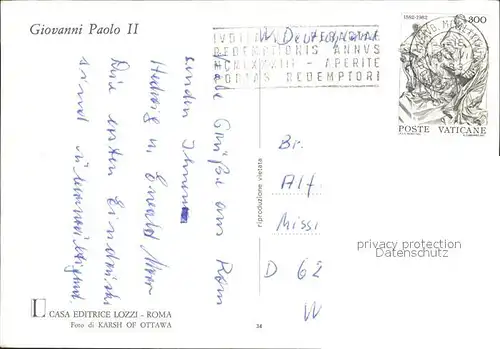 Giovanni Paolo II
W. Deutschland
MCMLXXXIII - APERITE
PORTAS REDEMPTORI
1582-1982
300
POSTE VATICANE
Grüße aus Rom
senden Ihnen
Hedwig u. Ewald
Die ersten Eindrücke
sind überwältigend.
Br.
Alf
Missi
D 62
W
riproduzione vietata
privacy protection
Datenschutz
L CASA EDITRICE LOZZI - ROMA
Foto di KARSH OF OTTAWA
34